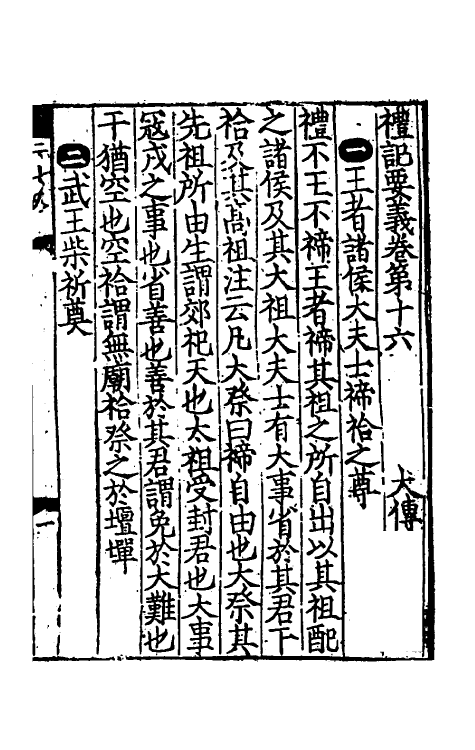 禮記要義卷第十六 大傳
一 王者諸侯大夫士禘祫之尊
禮不王不禘王者禘其祖之所自出以其祖配
之諸侯及其大祖大夫士有大事省於其君干
祫及其高祖注云凡大祭曰禘自由也大祭其
先祖所由生謂郊祀天也太祖受封君也大事
寇戎之事也省善也善於其君謂免於大難也
干猶空也空祫謂無廟祫祭之於壇墠
二 武王柴祈奠
一